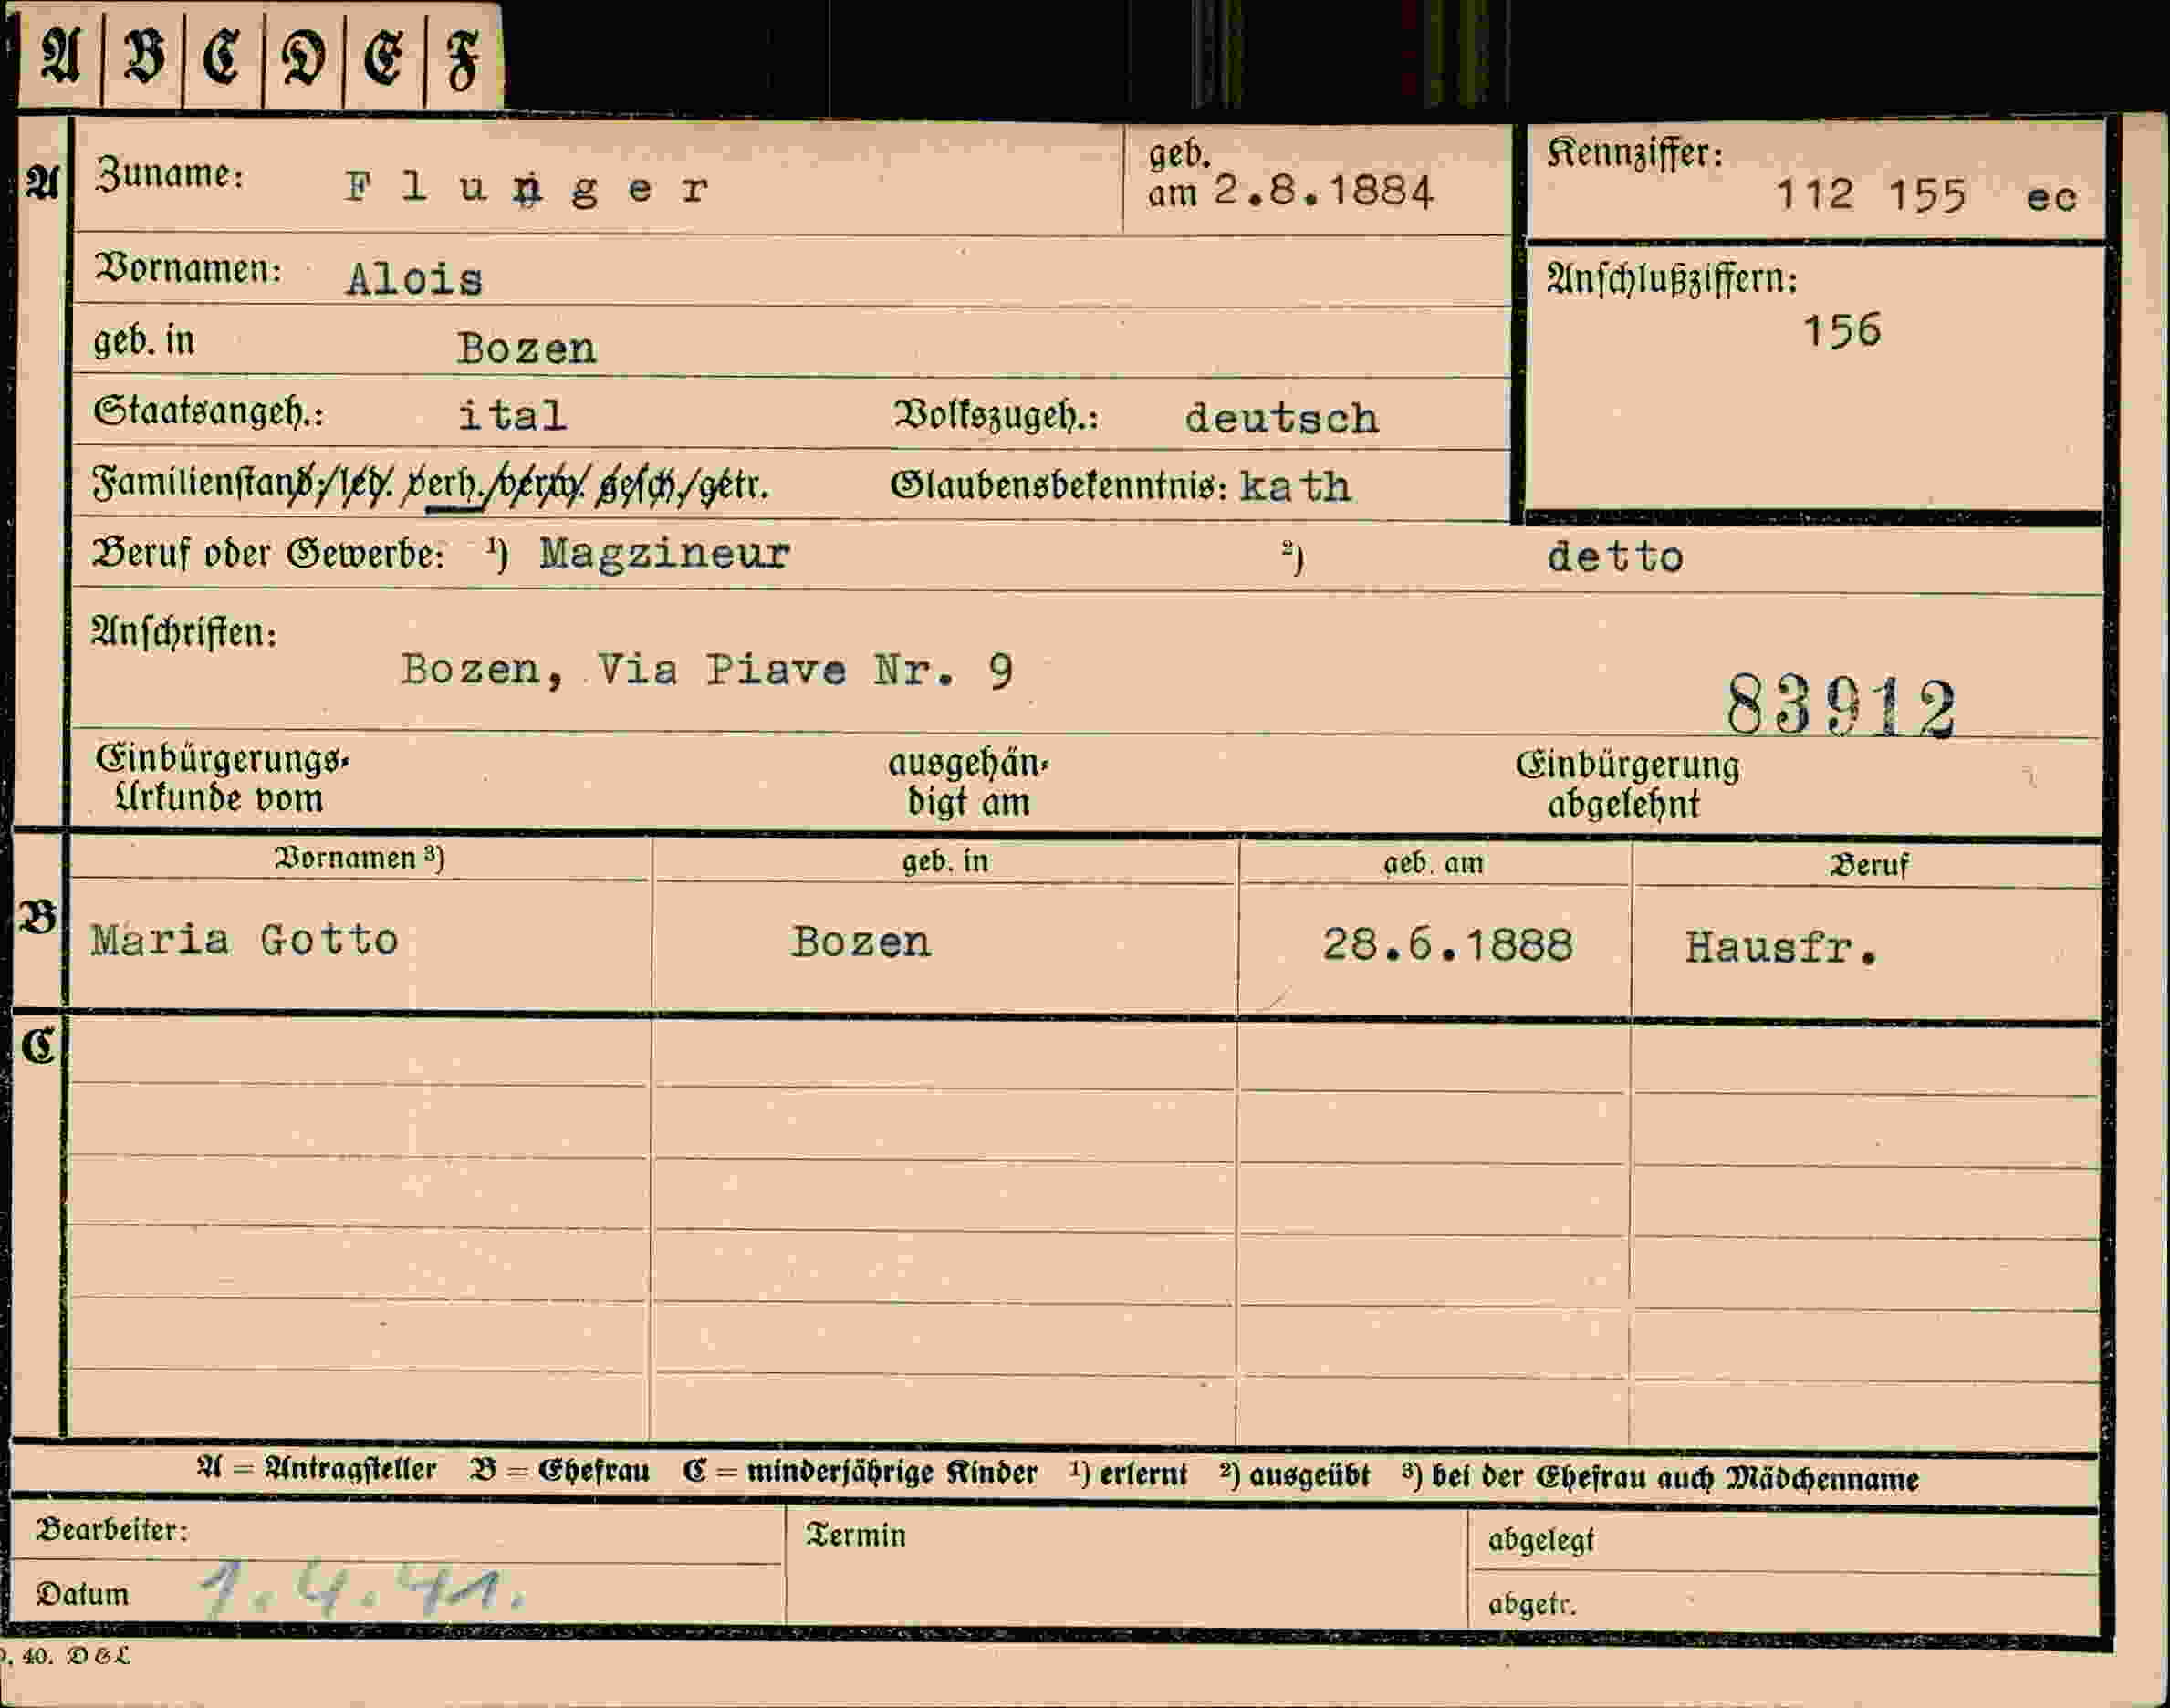 A B C D E F
A Zuname: Flunger geb. am 2.8.1884 Kennziffer: 112 155 ec
Vornamen: Alois Anschlußziffern: 156
geb. in Bozen
Staatsangeh.: ital Volkszugeh.: deutsch
Familienstand: led. verh. verw. gesch. getr. Glaubensbekenntnis: kath
Beruf oder Gewerbe: ¹) Magzineur ²) detto
Anschriften:
Bozen, Via Piave Nr. 9
83912
Einbürgerungs-Urkunde vom ausgehän-digt am Einbürgerung abgelehnt
Vornamen ³) geb. in geb. am Beruf
B Maria Gotto Bozen 28.6.1888 Hausfr.
C
A = Antragsteller B = Ehefrau C = minderjährige Kinder ¹) erlernt ²) ausgeübt ³) bei der Ehefrau auch Mädchenname
Bearbeiter: Termin abgelegt
Datum 1.4.41. abgetr.
40. D & L